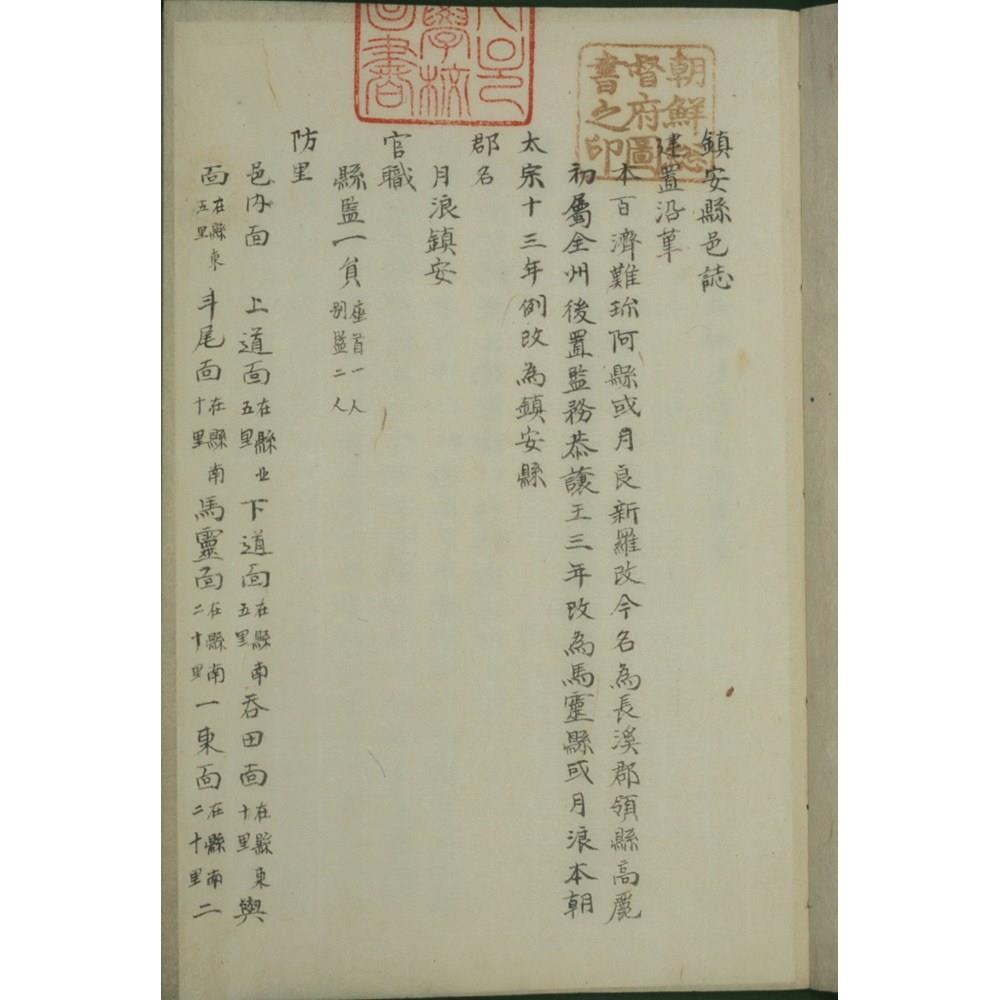 鎮安縣邑誌
建置沿革
本百濟難珍阿縣或月良新羅改今名為長溪郡領縣高麗
初屬全州後置監務恭讓王三年改為馬靈縣或月浪本朝
太宗十三年例改為鎮安縣
郡名
月浪鎮安
官職
縣監一員座首一人別監二人
防里
邑內面 上道面在縣北五里下道面在縣南五里吞田面在縣東十里輿
面在縣東五里 斗尾面在縣南十里馬靈面在縣南二十里一東面在縣南二十里二
朝鮮總督府圖書之印
學校
圖書